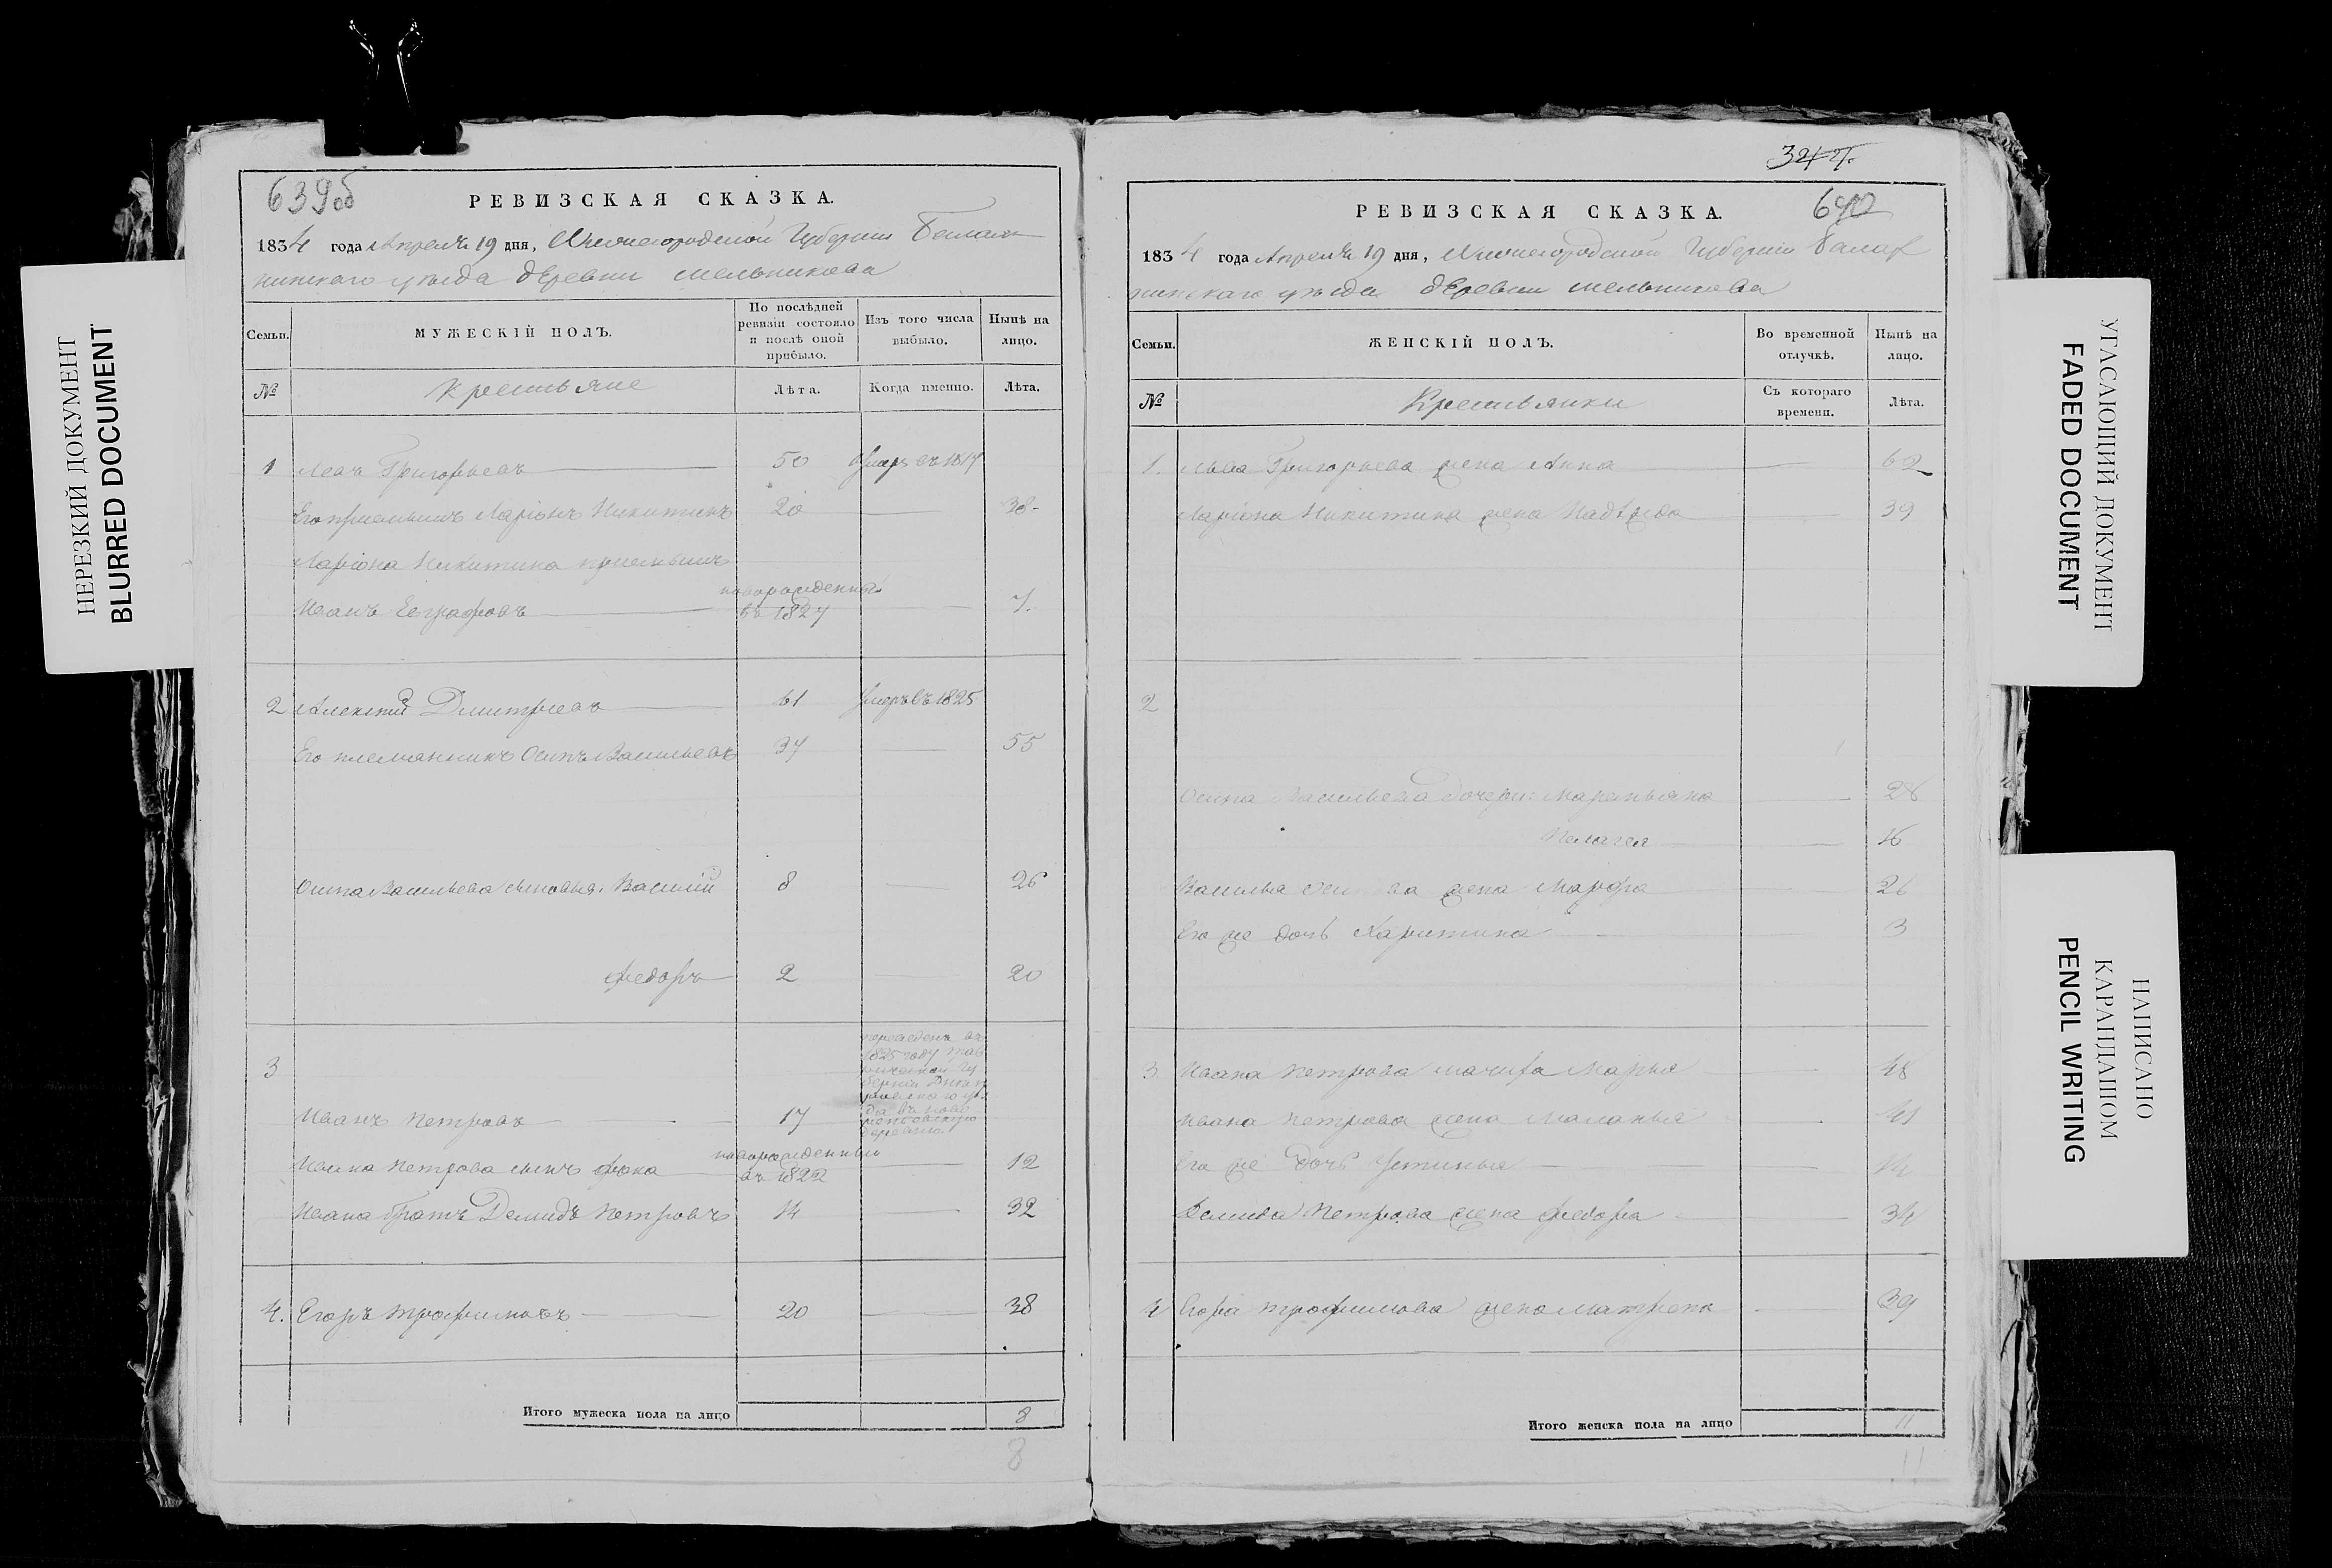 НЕРЕЗКИЙ ДОКУМЕНТ
BLURRED DOCUMENT
639об
РЕВИЗСКАЯ СКАЗКА.
1834 года Апреля 19 дня, Нижегородской Губернии Балах
нинскаго уѣзда дЕревни мельникова
Семьи.
МУЖЕСКІЙ ПОЛЪ.
По послѣдней ревизіи состояло и послѣ оной прибыло.
Изъ того числа выбыло.
Нынѣ на лицо.
№
крестьяне
Лѣта.
Когда именно.
Лѣта.
1 Левъ Григорьевъ 50 Умеръ въ 1817
Его приемышъ Ларіонъ Никитинъ 20 38
Ларіона Никитина приемышъ
Иванъ Евграфовъ новорожденный въ 1827 7.
2 Алексѣй Дмитриевъ 61 Умеръ въ 1825
Его племянникъ Осипъ Васильевъ 37 55
Осипа Васильева сыновья: Василій 8 26
Федоръ 2 20
3
переведенъ въ
1825 году Тав
рической Гу
берніи Днеп
ровскаго уѣз
да въ ново
деревню
Иванъ Петровъ 17
Ивана Петрова сынъ Фока новорожденный въ 1822 12
Ивана братъ Демидъ Петровъ 14 32
4. Егоръ Трофимовъ 20 38
Итого мужеска пола на лицо 8
8
324 2/.
640
РЕВИЗСКАЯ СКАЗКА.
1834 года Апреля 19 дня, Нижегородской Губернии Балах
нинскаго уѣзда дЕревни мельникова
Семьи.
ЖЕНСКІЙ ПОЛЪ.
Во временной отлучкѣ.
Нынѣ на лицо.
№
Крестьянки
Съ котораго времени.
Лѣта.
1. Льва Григорьева жена Анна 62
Ларіона Никитина жена Надѣжда 39
2
Осипа Васильева дочери: Маремьяна 28
Пелагея 16
Василья Осипова жена Марфа 26
Его же дочь Харитина 3
3. Ивана Петрова мачиха Марья 48
Ивана Петрова жена Маланья 41
Его же дочь Устинья 14
Демида Петрова жена Федора 34
4 Егора Трофимова жена Матрена 39
Итого женска пола на лицо 11
11
УГАСАЮЩИЙ ДОКУМЕНТ
FADED DOCUMENT
НАПИСАНО
КАРАНДАШОМ
PENCIL WRITING